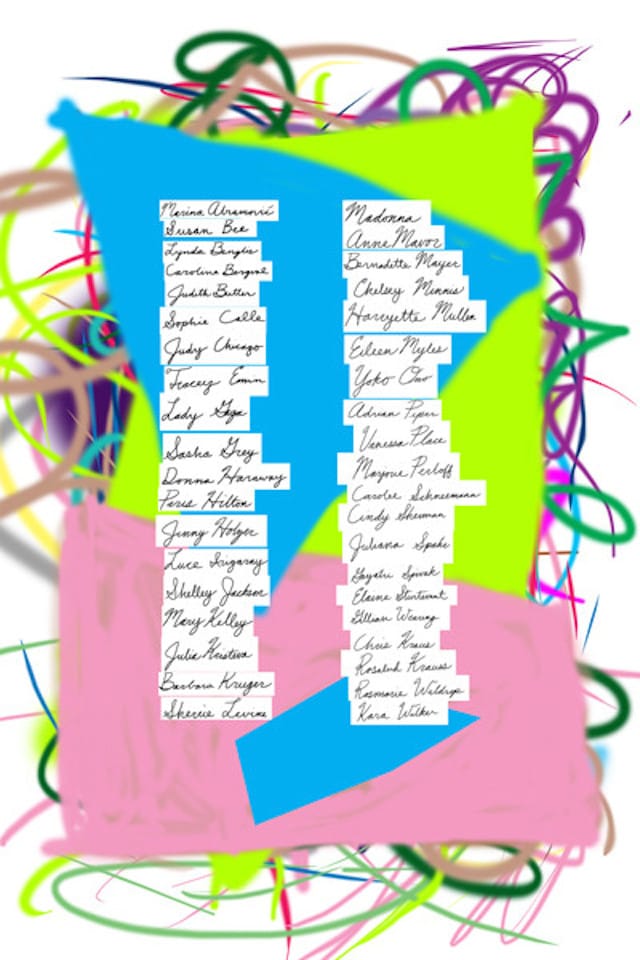 Marina Abramović
Susan Bee
Lynda Benglis
Caroline Bergval
Judith Butler
Sophie Calle
Judy Chicago
Tracey Emin
Lady Gaga
Sasha Grey
Donna Haraway
Paris Hilton
Jenny Holzer
Luce Irigaray
Shelley Jackson
Mary Kelley
Julia Kristeva
Barbara Kruger
Sherrie Levine
Madonna
Anne Mavor
Bernadette Mayer
Chelsey Minnis
Harryette Mullen
Eileen Myles
Yoko Ono
Adrian Piper
Vanessa Place
Marjorie Perloff
Carolee Schneemann
Cindy Sherman
Juliana Spahr
Gayatri Spivak
Elaine Sturtevant
Gillian Wearing
Chris Kraus
Rosalind Krauss
Rosmarie Waldrop
Kara Walker